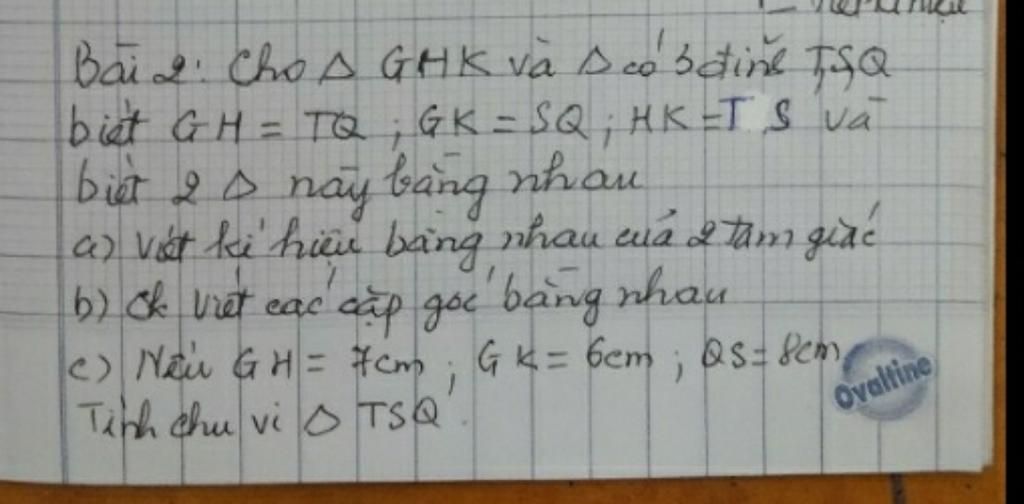 Bài 2: Cho Δ GHK và Δ có 3 đỉnh T,S,Q
biết GH = TQ ; GK = SQ ; HK = T S và
biết 2 Δ này bằng nhau
a) Viết kí hiệu bằng nhau của 2 tam giác
b) Viết các cặp góc bằng nhau
c) Nếu GH = 7cm ; GK = 6cm ; QS = 8cm
Tính chu vi Δ TSQ.
Ovaltine